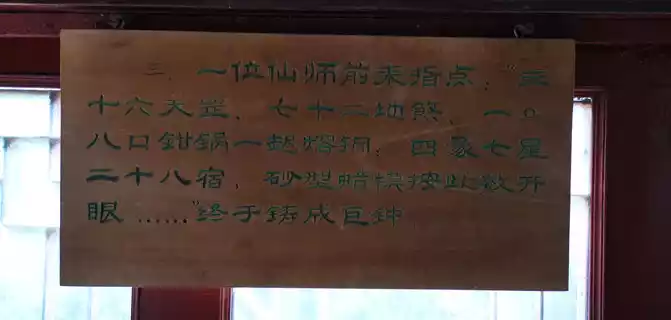 三、一位仙师前来指点:“三
十六天罡,七十二地煞,一〇
八口钳锅一起熔铜;四象七星
二十八宿,砂型腊模按此数开
眼……”终于铸成巨钟